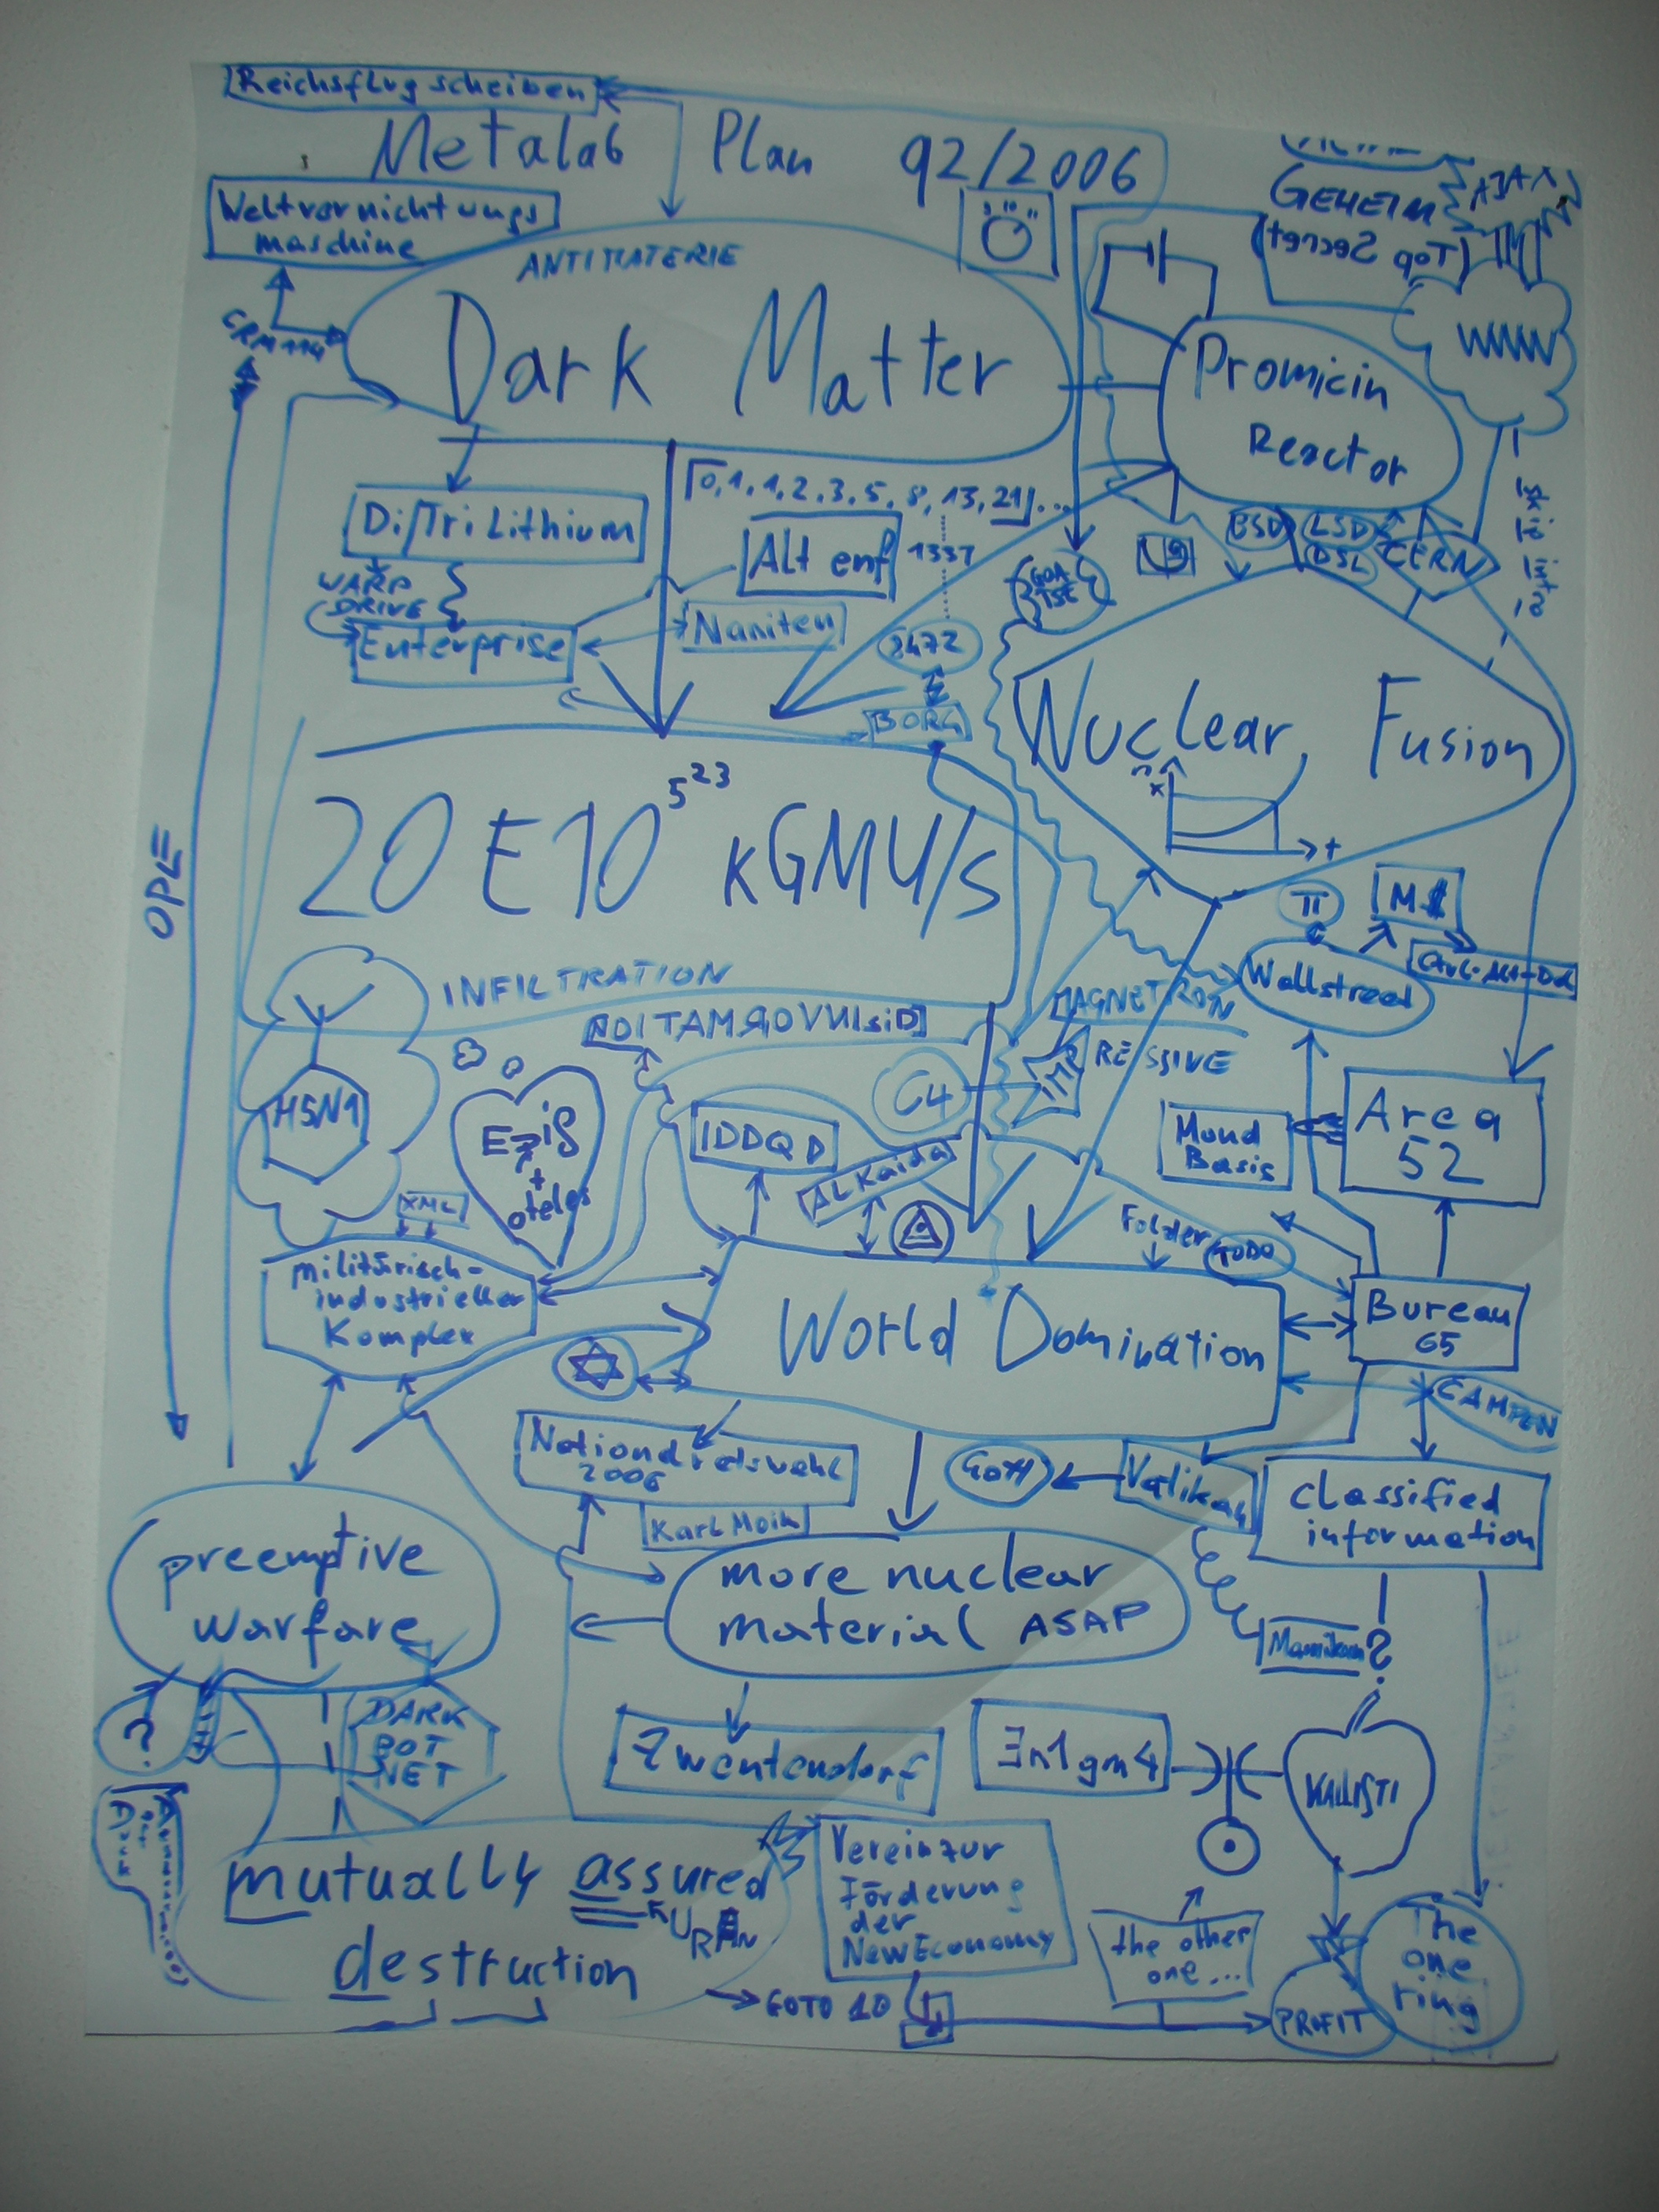 Reichsflugscheiben
Metalab Plan q2/2006
GEHEIM
(Top Secret)
Weltvernichtungs
maschine
ANTIMATERIE
Dark Matter
CRM114
WWW
Promicin
Reactor
0, 1, 1, 2, 3, 5, 8, 13, 21, ...
1337
Di/Tri Lithium
Alt enf
WARP
DRIVE
Enterprise
Naniten
8472
BORG
GOA
TSE
BSD
LSD
DSL
CERN
Nuclear Fusion
x
t
20 E10 5 23 kGMU/s
OPLE
π
M$
Ctrl-Alt-Del
Wallstreet
INFILTRATION
DisINVOЯMATION
MAGNETRON
RESSIVE
C4
H5N1
IDDQD
AL Kaida
Mond
Basis
Area
52
XML
Folder
TODO
militärisch-
industrieller
Komplex
World Domination
Bureau
65
CAMPEN
Nationalratswahl
2006
Karl Moik
GOTT
Vatikan
classified
information
preemptive
warfare
more nuclear
material ASAP
?
?
DARK
BOT
NET
Zwentendorf
Ǝn1gm4
KALLISTI
mutually assured
destruction
URAN
Verein zur
Förderung
der
New Economy
the other
one...
GOTO 10
PROFIT
The
one
ring